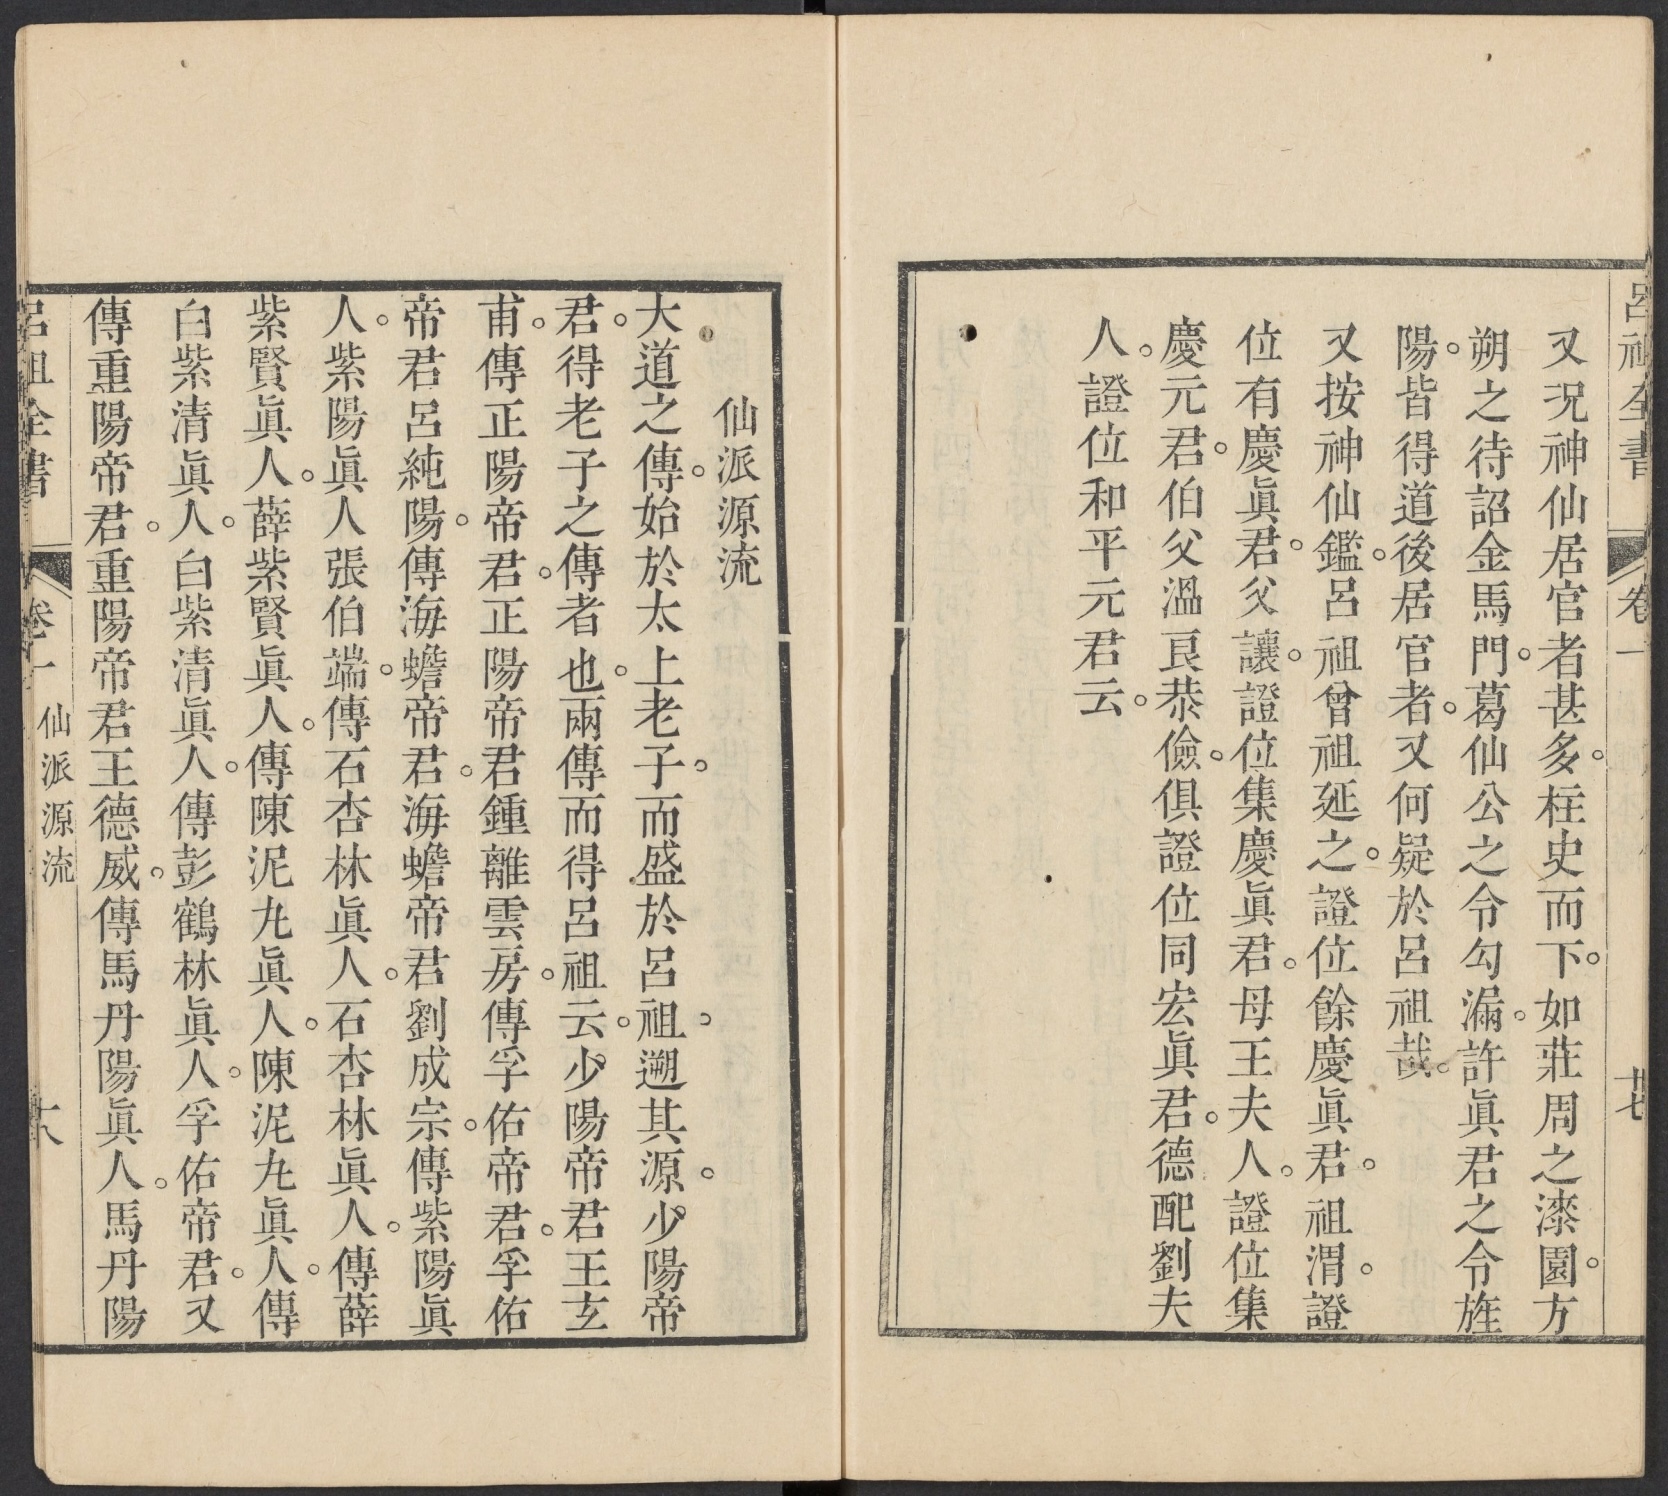 呂祖全書 卷一 十七
又况神仙居官者甚多。柱史而下。如莊周之漆園。方
朔之待詔金馬門。葛仙公之令勾漏。許眞君之令旌
陽。皆得道後居官者。又何疑於呂祖哉。
又按神仙鑑。呂祖曾祖延之。證位餘慶眞君。祖渭。證
位有慶眞君。父讓。證位集慶眞君。母王夫人。證位集
慶元君。伯父溫良恭儉。俱證位同宏眞君。德配劉夫
人。證位和平元君云。
仙派源流
大道之傳。始於太上老子。而盛於呂祖。遡其源。少陽帝
君。得老子之傳者也。兩傳而得呂祖云。少陽帝君王玄
甫。傳正陽帝君。正陽帝君鍾離雲房。傳孚佑帝君。孚佑
帝君呂純陽。傳海蟾帝君。海蟾帝君劉成宗。傳紫陽眞
人。紫陽眞人張伯端。傳石杏林眞人。石杏林眞人。傳薛
紫賢眞人。薛紫賢眞人。傳陳泥丸眞人。陳泥丸眞人。傳
白紫清眞人。白紫清眞人。傳彭鶴林眞人。孚佑帝君。又
傳重陽帝君。重陽帝君王德威。傳馬丹陽眞人。馬丹陽
呂祖全書 卷一 仙派源流 十八